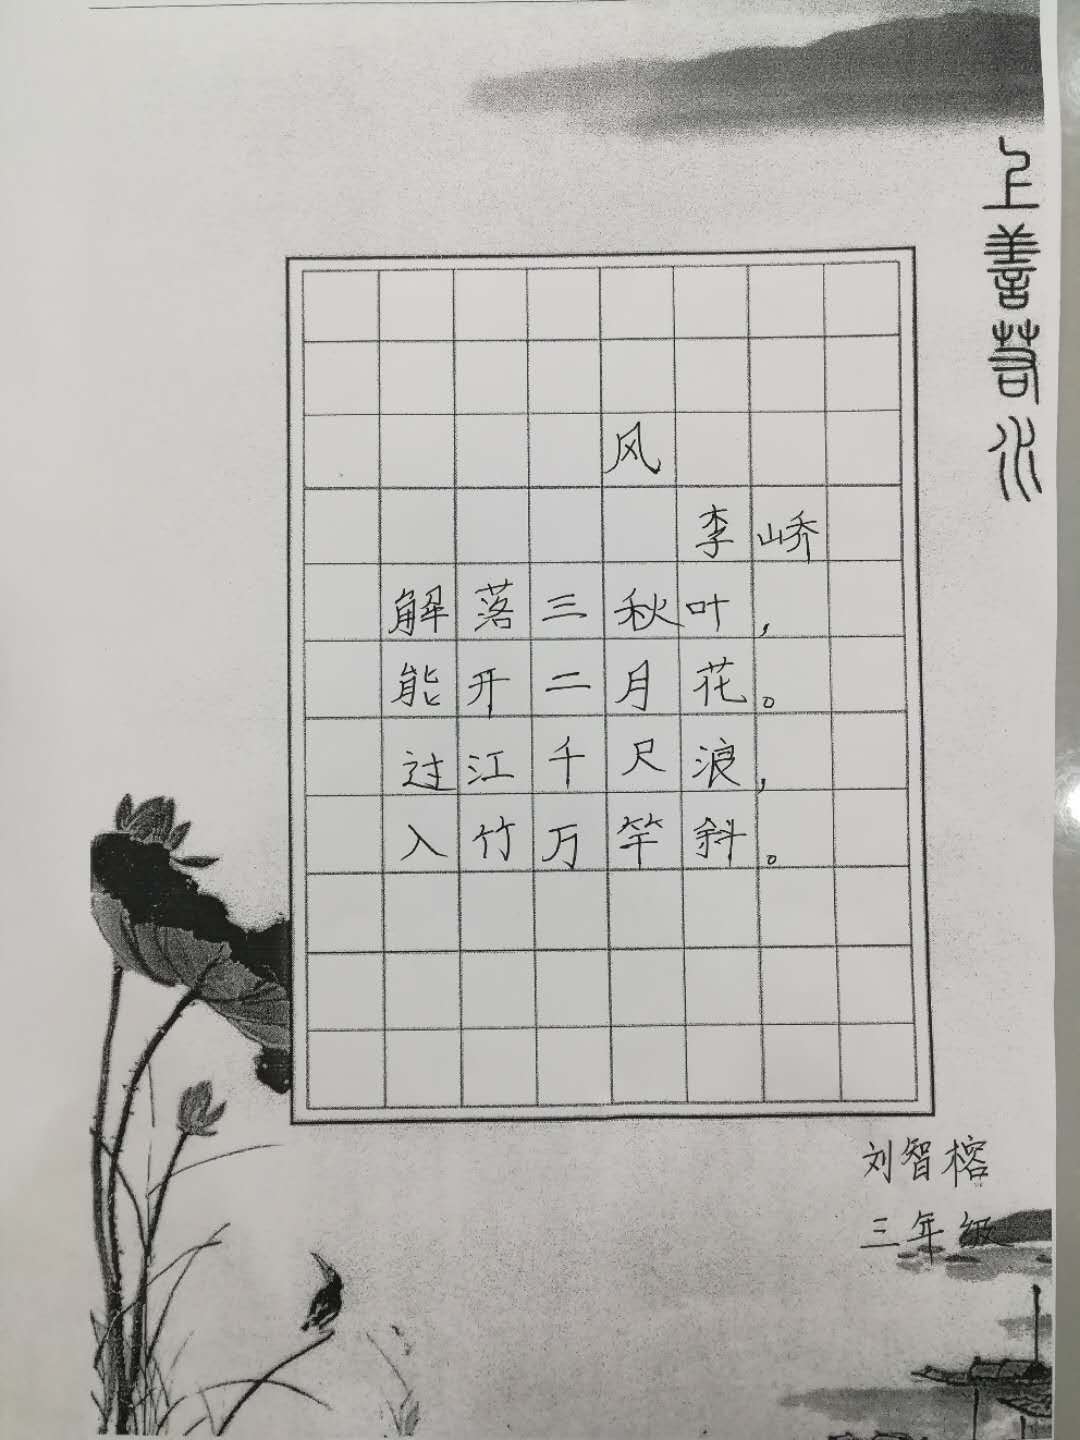 上善若水
风
李峤
解落三秋叶，
能开二月花。
过江千尺浪，
入竹万竿斜。
刘智榕
三年级